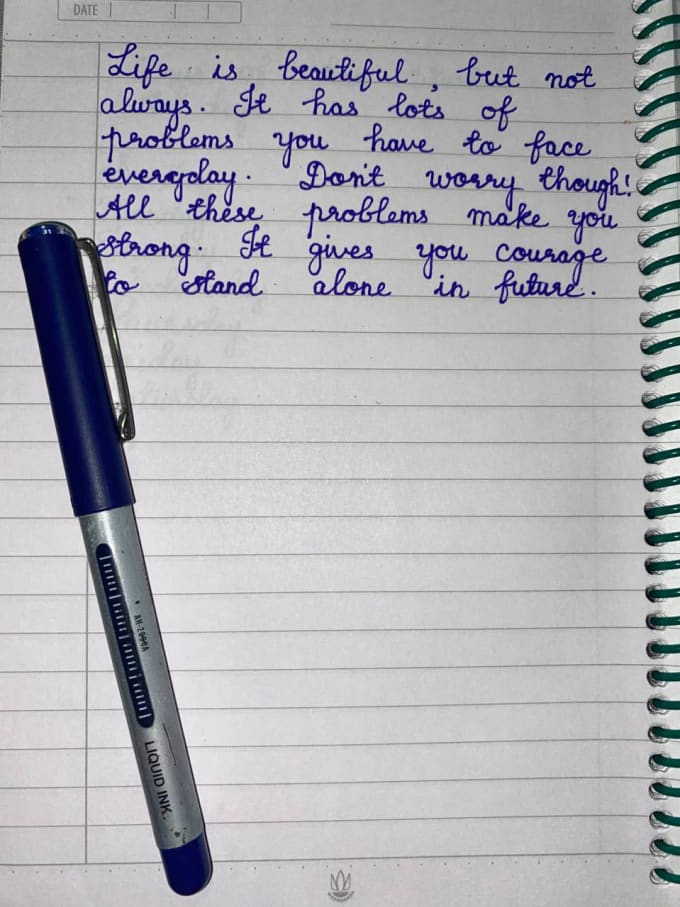 DATE
Life is beautiful, but not
always. It has lots of
problems you have to face
everyday. Don't worry though!
All these problems make you
strong. It gives you courage
to stand alone in future.
LIQUID INK